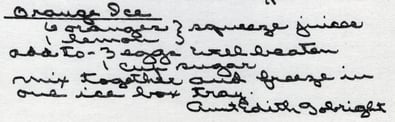 Orange Ice
6 oranges } squeeze juice
1 lemon
add to - 3 eggs well beaten
1 cup sugar
mix together and freeze in
one ice box tray.
Aunt Edith Gobright